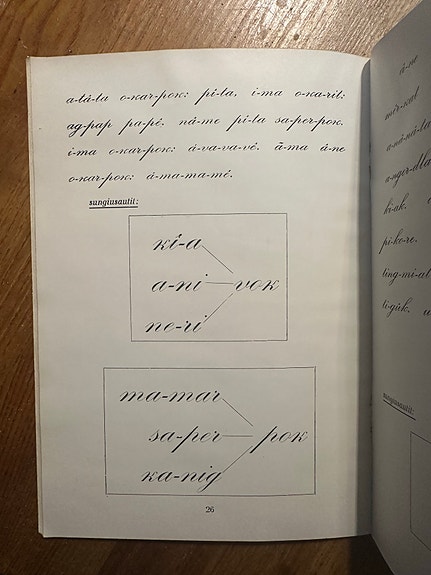 a-tâ-ta o-ĸar-poĸ: pi-ta, i-ma o-ĸa-rit:
ag-pap pa-pê. nâ-me pi-ta sa-per-poĸ.
i-ma o-ĸar-poĸ: á-va-va-vê. ã-ma â-ne
o-ĸar-poĸ: á-ma-ma-mê.
sungiusautit:
ĸî-a
a-ni voĸ
ne-ri
ma-mar
sa-per poĸ
ĸa-nig
26
â-ne
a-nâ-na
a-nger-dla
ĸi-aĸ,
ting-mi-at
ti-gûĸ,
sungiusautit: